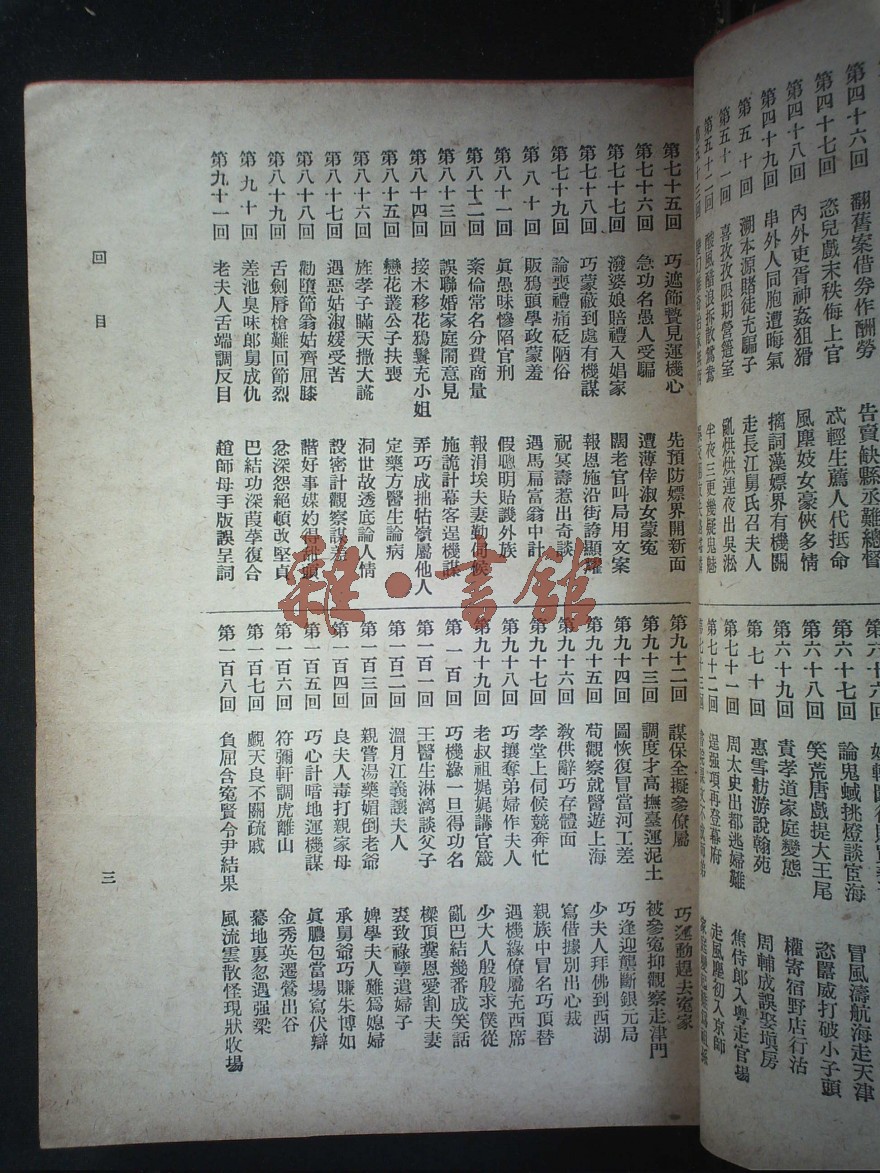 第四十六回 翻舊案借券作酬勞 告賣缺縣丞難總督
第四十七回 恣兒戲末秩侮上官 忒輕生薦人代抵命
第四十八回 內外吏胥神姦狙猾 風塵妓女豪俠多情
第四十九回 串外人同胞遭晦氣 摛詞藻嫖界有機關
第五十回 溯本源賭徒充騙子 走長江舅氏召夫人
第五十一回 喜孜孜限期營簉室 亂烘烘連夜出吳淞
第五十二回 酸風醋浪拆散鴛鴦 半夜三更幾疑鬼魅
第五十三回
第六十六回
第六十七回 論鬼蜮挑燈談宦海 冒風濤航海走天津
第六十八回 笑荒唐戲提大王尾 恣囂威打破小子頭
第六十九回 責孝道家庭變態 權寄宿野店行沽
第七十回 惠雪舫游說翰苑 周輔成誤娶塡房
第七十一回 周太史出都逃婦難 焦侍郎入粤走官場
第七十二回 逞強項再登幕府 走風塵初入京師
第七十三回
第七十五回 巧遮飾贄見運機心 先預防嫖界開新面
第七十六回 急功名愚人受騙 遭薄倖淑女蒙冤
第七十七回 潑婆娘賠禮入娼家 闊老官叫局用文案
第七十八回 巧蒙蔽到處有機謀 報恩施沿街誇顯耀
第七十九回 論喪禮痛砭陋俗 祝冥壽惹出奇談
第八十回 販鴉頭學政蒙羞 遇馬扁富翁中計
第八十一回 眞愚昧慘陷官刑 假聰明貽譏外族
第八十二回 紊倫常名分費商量 報涓埃夫妻勤伺候
第八十三回 誤聯婚家庭鬧意見 施詭計幕客逞機謀
第八十四回 接木移花鴉鬟充小姐 弄巧成拙牯嶺屬他人
第八十五回 戀花叢公子扶喪 定藥方醫生論病
第八十六回 旌孝子瞞天撒大謊 洞世故透底論人情
第八十七回 遇惡姑淑媛受苦 設密計觀察謀差
第八十八回 勸墮節翁姑齊屈膝 諧好事媒妁得甜頭
第八十九回 舌劍脣槍難回節烈 忿深怨絕頓改堅貞
第九十回 差池臭味郎舅成仇 巴結功深葭莩復合
第九十一回 老夫人舌端調反目 趙師母手版誤呈詞
第九十二回 謀保全擬參僚屬 巧運動趕去冤家
第九十三回 調度才高撫臺運泥土 被參冤抑觀察走津門
第九十四回 圖恢復冒當河工差 巧逢迎壟斷銀元局
第九十五回 苟觀察就醫遊上海 少夫人拜佛到西湖
第九十六回 教供辭巧存體面 寫借據別出心裁
第九十七回 孝堂上伺候競奔忙 親族中冒名巧頂替
第九十八回 巧攘奪弟婦作夫人 遇機緣僚屬充西席
第九十九回 老叔祖娓娓講官箴 少大人殷殷求僕從
第一百回 巧機緣一旦得功名 亂巴結幾番成笑話
第一百一回 王醫生淋漓談父子 樑頂糞恩愛割夫妻
第一百二回 溫月江義讓夫人 裘致祿孽遺婦子
第一百三回 親嘗湯藥媚倒老爺 婢學夫人難爲媳婦
第一百四回 良夫人毒打親家母 承舅爺巧賺朱博如
第一百五回 巧心計暗地運機謀 眞膿包當場寫伏辯
第一百六回 符彌軒調虎離山 金秀英遷鶯出谷
第一百七回 覷天良不關疏戚 驀地裏忽遇强梁
第一百八回 負屈含冤賢令尹結果 風流雲散怪現狀收場
回目
三
雜·書館